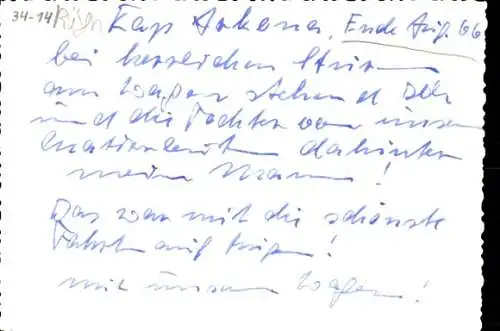 34-14/Rügen Kap Arkona, Ende Aug. 66
bei herrlichem Sturm
am Wagen stehend ich
und die Tochter von unseren
Quartiersleuten dahinter
mein Mann!
Das war mit die schönste
Fahrt auf Rügen!
mit unserem Wagen!